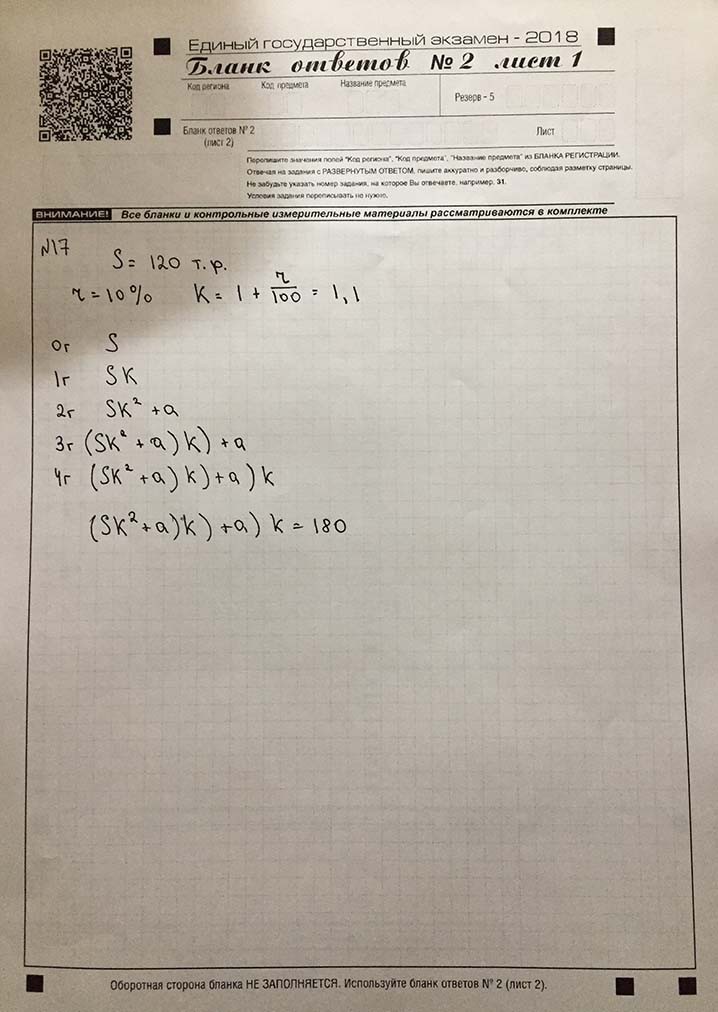 Единый государственный экзамен - 2018
Бланк ответов № 2 лист 1
Код региона Код предмета Название предмета
Резерв - 5
Бланк ответов № 2
(лист 2)
Лист
Перепишите значения полей "Код региона", "Код предмета", "Название предмета" из БЛАНКА РЕГИСТРАЦИИ.
Отвечая на задания с РАЗВЕРНУТЫМ ОТВЕТОМ, пишите аккуратно и разборчиво, соблюдая разметку страницы.
Не забудьте указать номер задания, на которое Вы отвечаете, например, 31.
Условия задания переписывать не нужно.
ВНИМАНИЕ! Все бланки и контрольные измерительные материалы рассматриваются в комплекте
№17
S = 120 т.р.
r = 10% K = 1 + r/100 = 1,1
0г S
1г SK
2г SK² + a
3г (SK² + a) k) + a
4г (SK² + a) k) + a) k
(SK² + a) k) + a) k = 180
Оборотная сторона бланка НЕ ЗАПОЛНЯЕТСЯ. Используйте бланк ответов № 2 (лист 2).